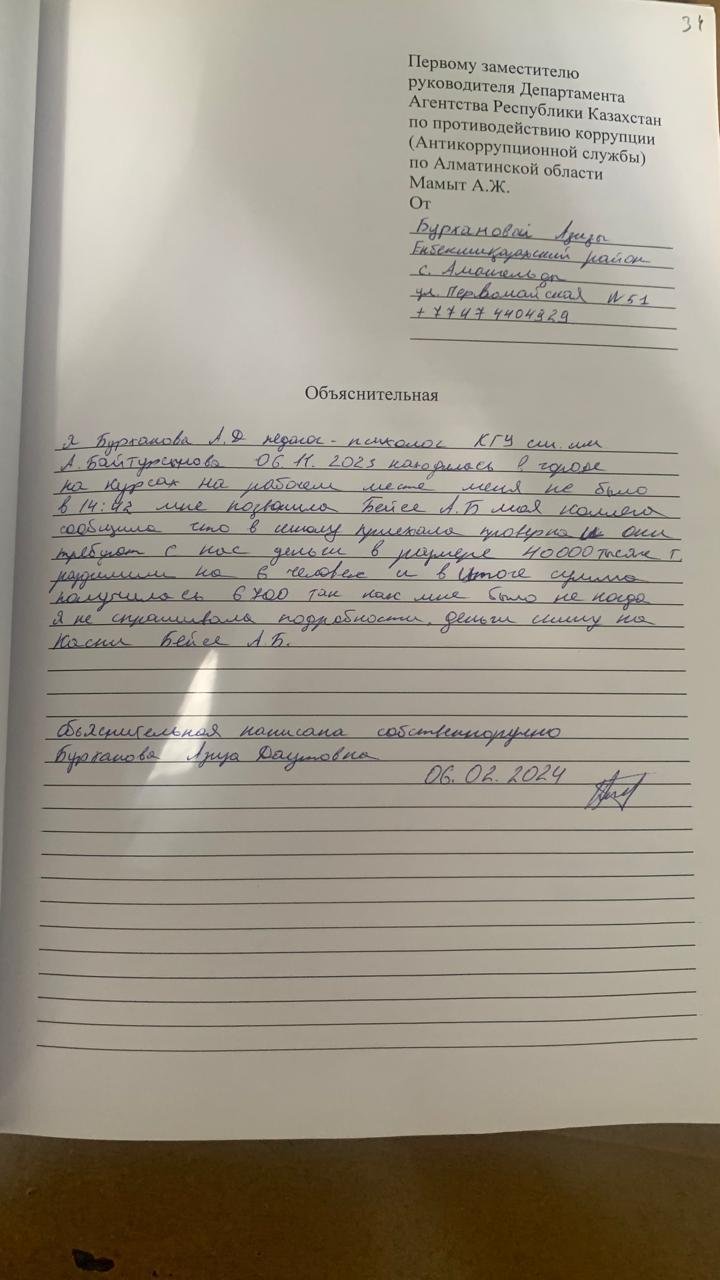 34
Первому заместителю
руководителя Департамента
Агентства Республики Казахстан
по противодействию коррупции
(Антикоррупционной службы)
по Алматинской области
Мамыт А.Ж.
От
Бурхановой Азизы
Енбекшиказахский район
с. Амангельды
ул. Первомайская №51
+7747 4404929
Объяснительная
я Бурханова А.Д педагог-психолог КГУ сш. им
А. Байтурсынова 06.11.2023 находилась в городе
на курсах на рабочем месте меня не было
в 14:42 мне позвонила Бейсе А.Б моя коллега
сообщила что в школу приехала проверка и они
требуют с нас деньги в размере 40000 тысяч т,
разделили на 6 человек и в итоге сумма
получилась 6700 так как мне было не когда
я не спрашивала подробности, деньги скинула на
Каспи Бейсе А.Б.
Объяснительная написана собственноручно
Бурханова Азиза Даутовна
06.02.2024